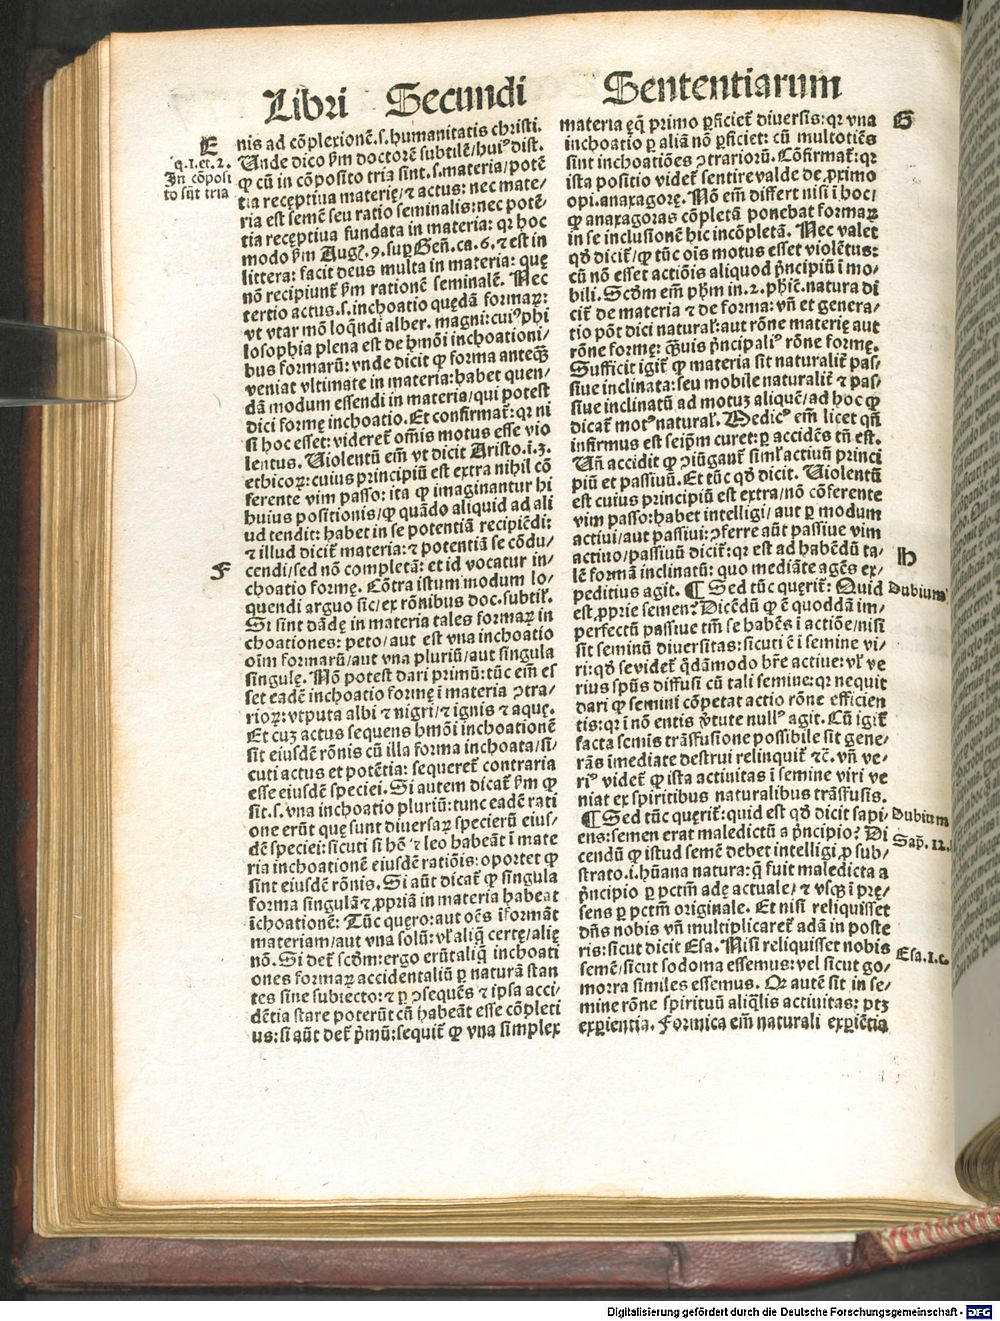 Libri Secundi Sententiarum
E
q.1.et.2.
In cõposi
to sũt tria
nis ad cõplexionẽ.s.humanitatis christi.
Unde dico ẜm doctorẽ subtilẽ/huiꝰ dist.
ꝙ cũ in cõposito tria sint.s.materia/potẽ
tia receptiua materię/⁊ actus: nec mate/
ria est semẽ seu ratio seminalis: nec potẽ/
tia receptiua fundata in materia: qꝛ hoc
modo ẜm Augꝰ.9.suꝑ Geñ.ca.6.⁊ est in
littera: facit deus multa in materia: quę
nõ recipiunt̃ ẜm rationẽ seminalẽ. Nec
tertio actus.s.inchoatio quędã formaꝝ:
vt vtar mõ loq̃ndi alber. magni: cuiꝰ phi
losophia plena est de hmõi inchoationi/
bus formarũ: vnde dicit ꝙ forma anteq̃ȝ
veniat vltimate in materia: habet quen/
dã modum essendi in materia/qui potest
dici formę inchoatio. Et confirmat̃: qꝛ ni
si hoc esset: videret̃ om̃is motus esse vio
lentus. Uiolentũ em̃ vt dicit Aristo.i.3.
ethicoꝝ: cuius principiũ est extra nihil cõ
ferente vim passo: ita ꝙ imaginantur hi
huius positionis/ꝙ quãdo aliquid ad ali
ud tendit: habet in se potentiã recipiẽdi:
⁊ illud dicit̃ materia: ⁊ potentiã se cõdu/
F
cendi/sed nõ completã: et id vocatur in/
choatio formę. Cõtra istum modum lo/
quendi arguo sic/ex rõnibus doc.subtil̃.
Si sint dãdę in materia tales formaꝝ in
choationes: peto/aut est vna inchoatio
oĩm formarũ/aut vna pluriũ/aut singula
singulę. Nõ potest dari primũ: tũc em̃ es
set eadẽ inchoatio formę ĩ materia ꝯtra/
rioꝝ: vtputa albi ⁊ nigri/⁊ ignis ⁊ aquę.
Et cuȝ actus sequens hmõi inchoationẽ
sit eiusdẽ rõnis cũ illa forma inchoata/si/
cuti actus et potẽtia: sequeret̃ contraria
esse eiusdẽ speciei. Si autem dicat̃ ẜm ꝙ
sit.s.vna inchoatio pluriũ: tunc eadẽ rati
one erũt quę sunt diuersaꝝ specierũ eius/
dẽ speciei: sicuti si hõ ⁊ leo habeãt ĩ mate
ria inchoationẽ eiusdẽ ratiõis: oportet ꝙ
sint eiusdẽ rõnis. Si aũt dicat̃ ꝙ singula
forma singulã ⁊ ꝓpriã in materia habeat
ĩchoationẽ: Tũc quęro: aut oẽs ĩformãt
materiam/aut vna solũ: vl̃ aliq̃ certę/alię
nõ. Si det̃ scðm: ergo erũt aliq̃ inchoati
ones formaꝝ accidentaliũ ꝑ naturã stan
tes sine subiecto: ⁊ ꝑ ꝯsequẽs ⁊ ipsa acci/
dẽtia stare poterũt cũ habeãt esse cõpleti
us: si aũt det̃ p̃mũ: sequit̃ ꝙ vna simplex
materia ęq̃ primo ꝑficiet̃ diuersis: qꝛ vna
G
inchoatio ꝑ aliã nõ ꝑficiet: cũ multotiẽs
sint inchoatiões ꝯtrariorũ. Cõfirmat̃: qꝛ
ista positio videt̃ sentire valde de ꝓximo
opi.anaxagorę. Nõ em̃ differt nisi ĩ hoc:
ꝙ anaxagoras cõpletã ponebat formaꝝ
in se inclusionẽ hic incõpletã. Nec valet
qð dicit̃/ꝙ tũc ois motus esset violẽtus:
cũ nõ esset actiõis aliquod p̃ncipiũ ĩ mo/
bili. Scðm em̃ phm in.2.phic̃.natura di
cit̃ de materia ⁊ de forma: vñ et genera/
tio põt dici natural̃: aut rõne materię aut
rõne formę: q̃uis p̃ncipaliꝰ rõne formę.
Sufficit igit̃ ꝙ materia sit naturalit̃ pas/
siue inclinata: seu mobile naturalit̃ ⁊ pas/
siue inclinatũ ad motuȝ aliquẽ/ad hoc ꝙ
dicat̃ motꝰ natural̃. Medicꝰ em̃ licet qñ
infirmus est seip̃m curet: ꝑ accidẽs tñ est.
Uñ accidit ꝙ ꝯiũgant̃ siml̃ actiuũ princi
piũ et passiuũ. Et tũc qð dicit. Uiolentũ
est cuius principiũ est extra/nõ cõferente
vim passo: habet intelligi/aut ꝑ modum
actiui/aut passiui: ꝯferre aũt passiue vim
H
actiuo/passiuũ dicit̃: qꝛ est ad habẽdũ ta/
lẽ formã inclinatũ: quo mediãte agẽs ex/
peditius agit. ¶ Sed tũc querit̃: Quid
Dubium
est ꝓprie semen? Dicẽdũ ꝙ ẽ quoddã im/
perfectũ passiue tm̃ se habẽs ĩ actiõe/nisi
sit seminũ diuersitas: sicuti ẽ ĩ semine vi/
ri: qð se videt̃ q̃dãmodo hr̃e actiue: vl̃ ve
rius spũs diffusi cũ tali semine: qꝛ nequit
dari ꝙ semini cõpetat actio rõne efficien
tis: qꝛ ĩ nõ entis ꝟtute nullꝰ agit. Cũ igit̃
facta semis trãsfusione possibile sit gene/
rãs ĩmediate destrui relinquit̃ ⁊c̃. vñ ve/
riꝰ videt̃ ꝙ ista actiuitas ĩ semine viri ve
niat ex spiritibus naturalibus trãsfusis.
¶ Sed tũc quęrit̃: quid est qð dicit sapi/
Dubium
Sap̃.12.
ens: semen erat maledictũ a p̃ncipio? Di
cendũ ꝙ istud semẽ debet intelligi ꝓ sub/
strato.i.hũana natura: q̃ fuit maledicta a
p̃ncipio ꝑ pctm̃ adę actuale/⁊ vsqꝫ ĩ prę/
sens ꝑ pctm̃ originale. Et nisi reliquisset
dñs nobis vñ multiplicaret̃ adã in poste
ris: sicut dicit Esa. Nisi reliquisset nobis
Esa.1.c.
semẽ/sicut sodoma essemus: vel sicut go/
morra similes essemus. Qꝛ autẽ sit in se/
mine rõne spirituũ aliq̃lis actiuitas: ptȝ
exꝑientia. Formica em̃ naturali exꝑiẽtia
Digitalisierung gefördert durch die Deutsche Forschungsgemeinschaft - DFG